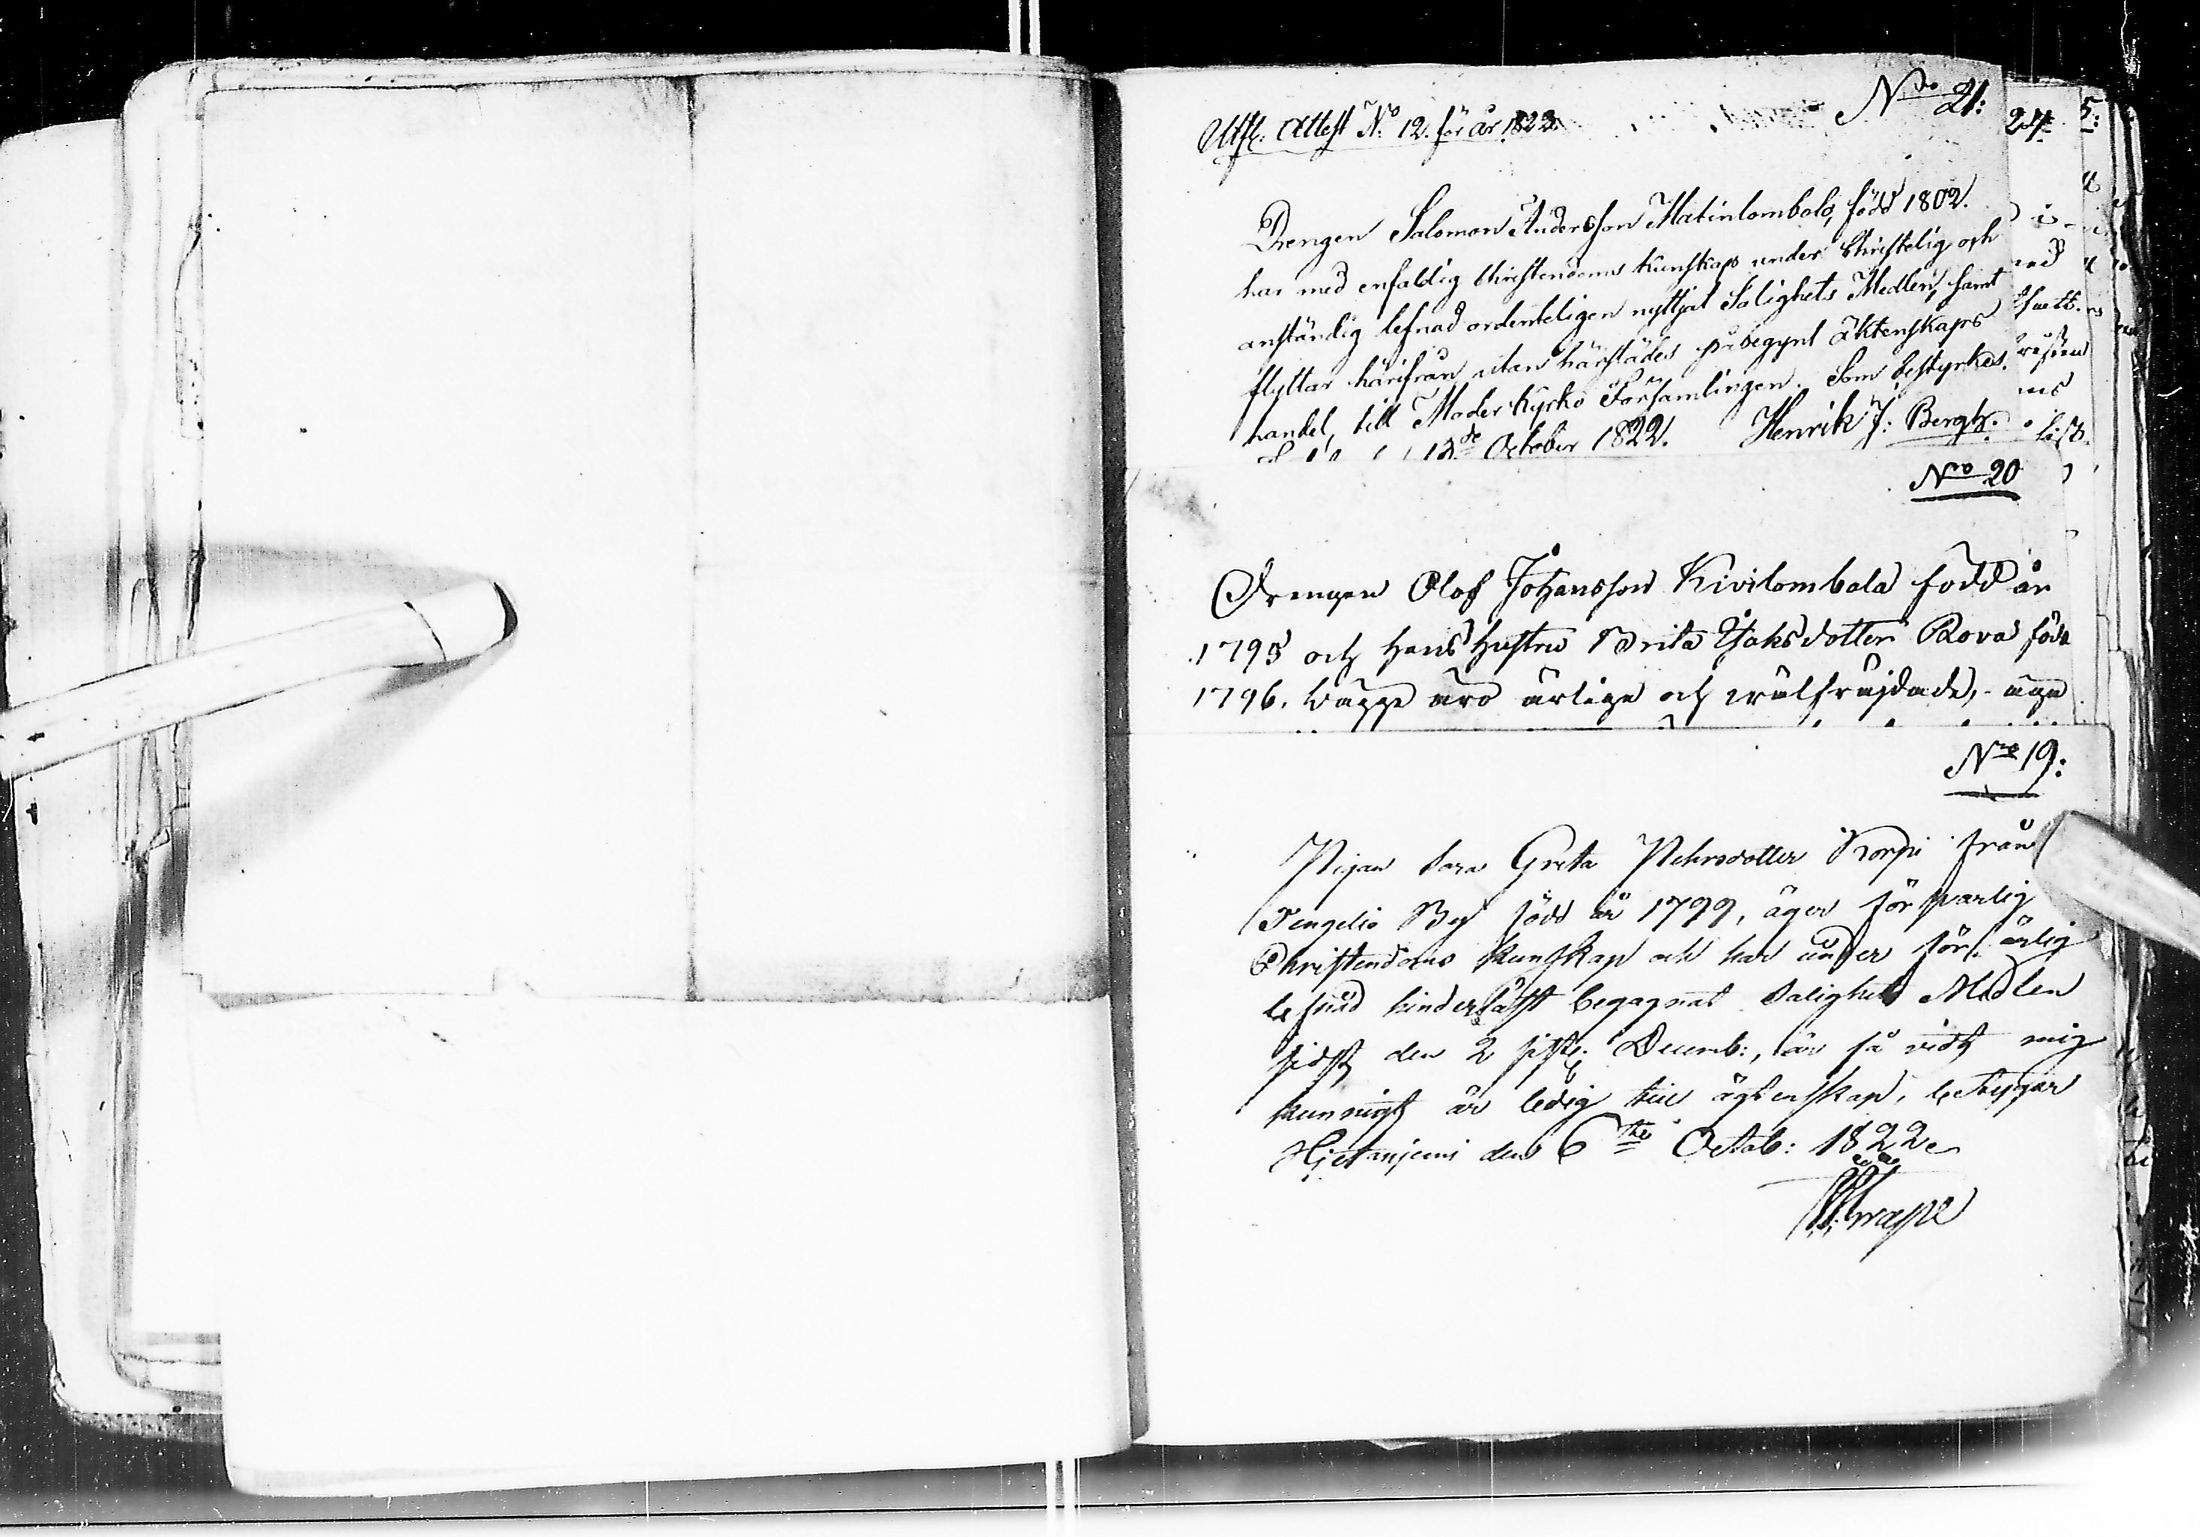 Nro 21:
Utfl. Attest No 12. för år 1822.
Drengen Salomon Andersson Matinlombolo, född 1802.
har med enfaldig Christendoms kunskap under Christelig och
anständig lefnad ordenteligen nyttjat Salighets Medlen, samt
flyttar härifrån utan härstädes påbegynt äktenskaps
handel, till Moderkyrko Församlingen. Som bestyrkes.
12de October 1822. Henrik J: Bergh.
Nro 20
Drengen Olof Johansson Kivilombolo född år
1795 och hans hustru Brita Isaksdotter Rova född
1796. bägge äro ärlige och wälfrejdade, äga
Nro 19:
Pigan Sara Greta Pehrsdotter Korpi från
Tengeliö By född år 1799, äger försvarlig
Christendoms kunskap och har under för ärlig
lefnad hinderlöst begagnat Salighets Medlen
sidst den 2 sistl. Decemb:, är så vidt mig
kunnigt är ledig till ägtenskap, betygar
Hjetaniemi den 6te Octob: 1822